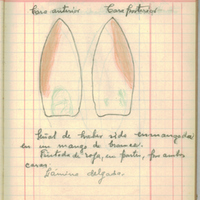 Cara anterior Cara posterior
Señal de haber sido enmangada
en un mango de
Pintada de roja, en partes, por ambas
caras
Lamina delgada